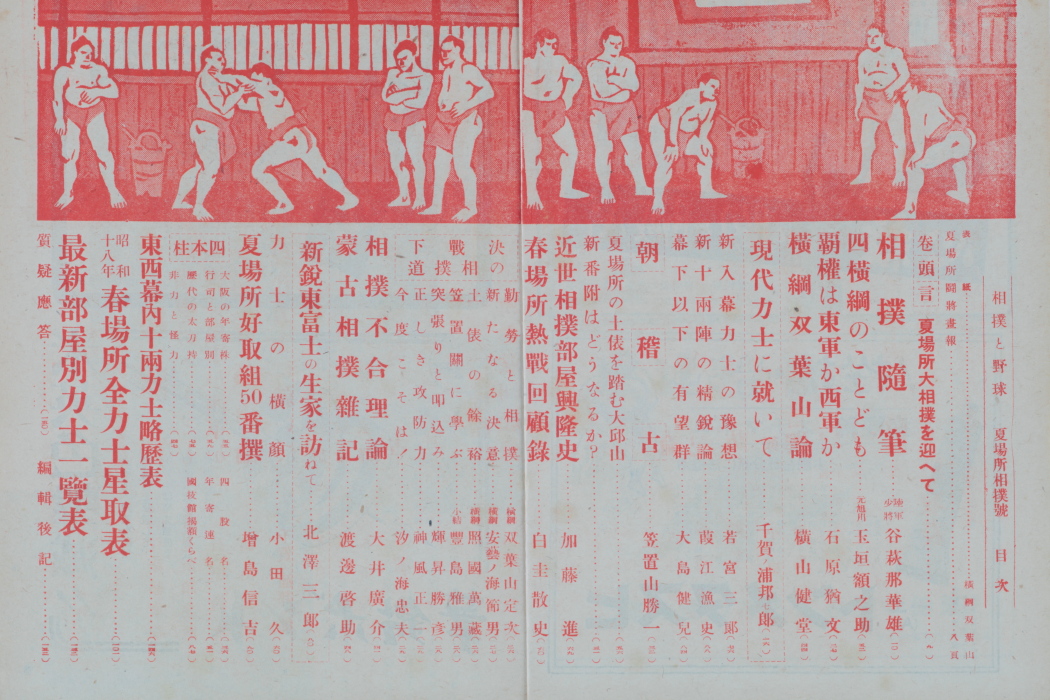 相撲と野球 夏場所相撲號 目次
表紙 横綱双葉山
夏場所闘將畫報
卷頭言 夏場所大相撲を迎へて
相撲隨筆 陸軍少將 谷萩那華雄
四横綱のことども 元旭川 玉垣額之助
覇權は東軍か西軍か 石原猶文
横綱双葉山論 横山健堂
現代力士に就いて 千賀ノ浦邦七郎
新入幕力士の豫想 若宮三郎
新十兩陣の精銳論 葭江漁史
幕下以下の有望群 大島健兒
朝稽古 笠置山勝一
夏場所の土俵を踏む大邱山
新番附はどうなるか?
近世相撲部屋興隆史 加藤進
春場所熱戰回顧錄 白圭散史
決戰下の相撲道
勤勞と相撲 横綱 双葉山定次
新たなる決意 横綱 安藝ノ海節男
土俵の餘裕 横綱 照國萬藏
笠置關に學ぶ 小結 豐島雅男
突張りと叩込み 輝昇勝彦
正しき攻防力 神風正一
今度こそは! 汐ノ海忠夫
相撲不合理論 大井廣介
蒙古相撲雜記 渡邊啓助
新銳東富士の生家を訪ねて 北澤三郎
力士の横顔 小田久
夏場所好取組50番撰 增島信吉
四本柱
大阪の年寄株
行司と部屋別
歷代の太刀持
非力と怪力
四股名
年寄連名
國技館福額くらべ
東西幕内十兩力士略歷表
昭和十八年 春場所全力士星取表
最新部屋別力士一覽表
質疑應答
編輯後記